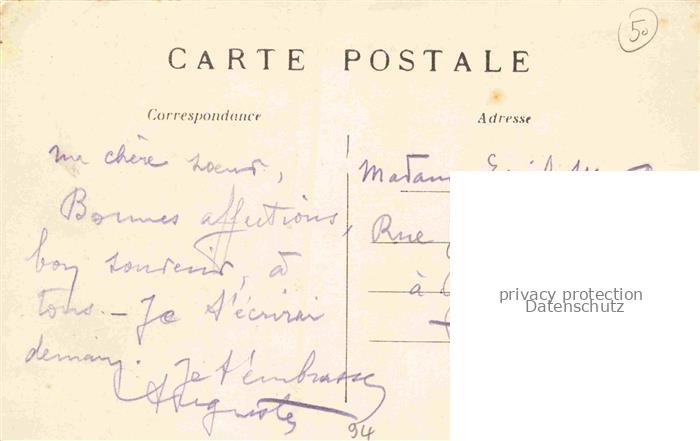 50
CARTE POSTALE
Correspondance
Adresse
ma chère soeur,
Bonnes affections,
bon souvenir, à
tous. - Je t'écrirai
demain.
Je t'embrasse
Auguste
Madam
Rue
à
privacy protection
Datenschutz
94